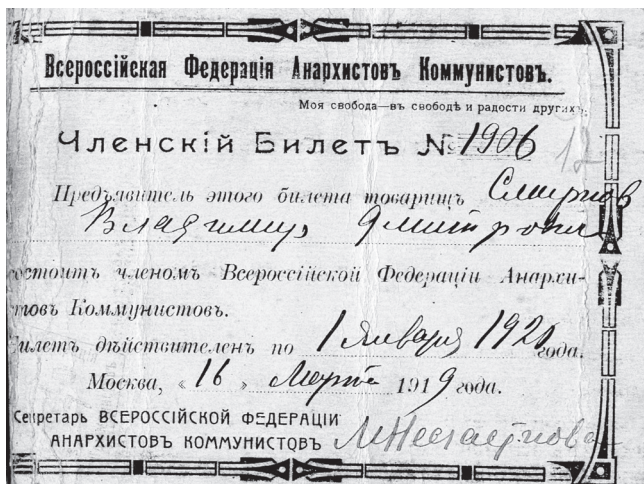 Всероссійская Федерація Анархистовъ Коммунистовъ.
Моя свобода—въ свободѣ и радости другихъ.
Членскій Билетъ № 1906 12
Предъявитель этого билета товарищъ Смирнов
Владимир
состоитъ членомъ Всероссійской Федераціи Анархи-
стовъ Коммунистовъ.
Билетъ дѣйствителенъ по 1 Января 1920 года.
Москва, « 16 » Марта 1919 года.
Секретарь ВСЕРОССІЙСКОЙ ФЕДЕРАЦІИ
АНАРХИСТОВЪ КОММУНИСТОВЪ